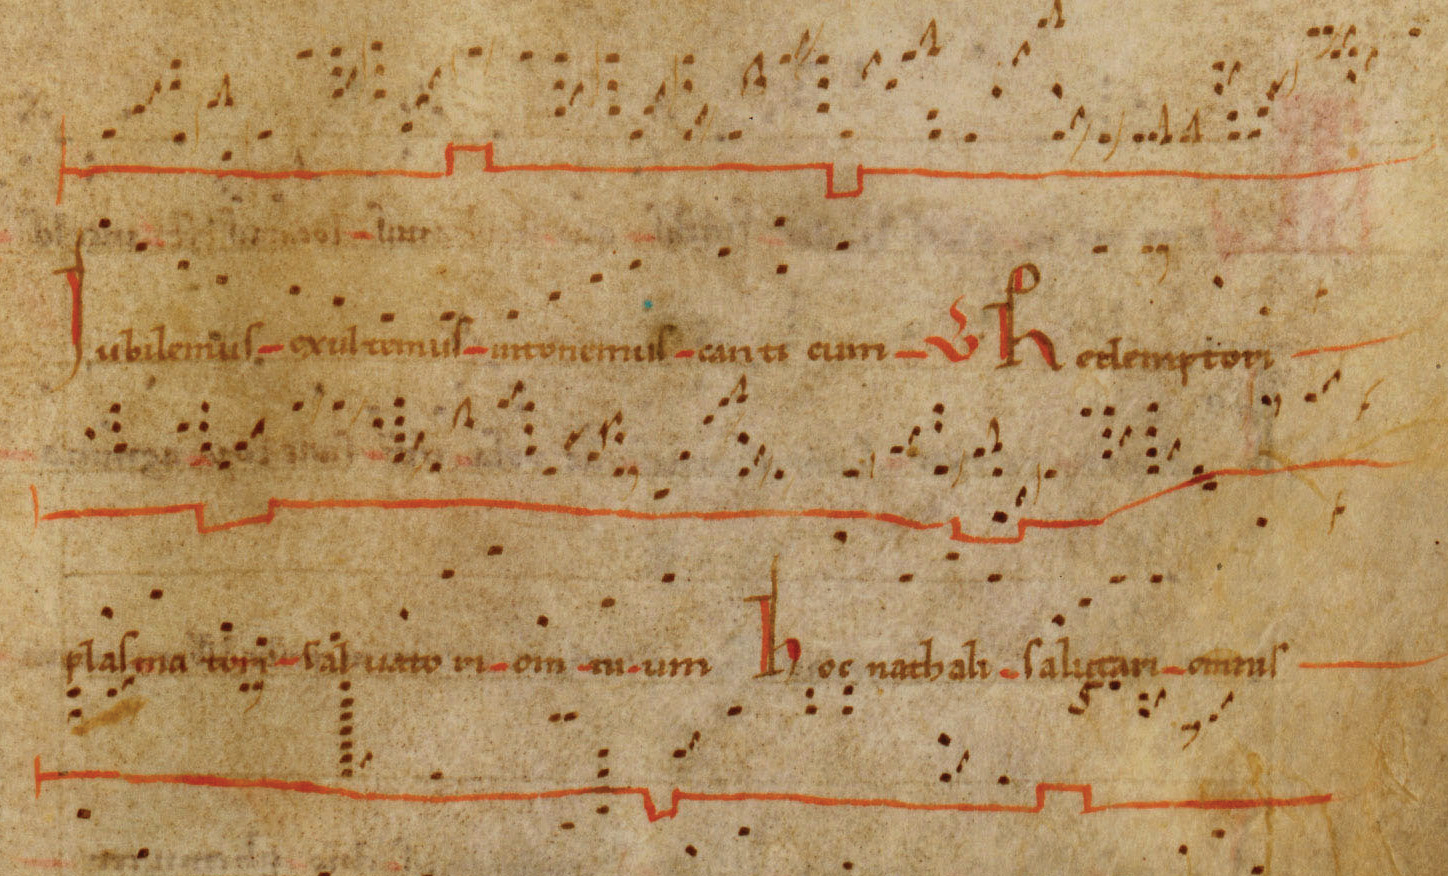 Iubilemus exultemus intonemus canticum Redemptori
plasmatori saluatori omnium hoc nathali salutari omnis